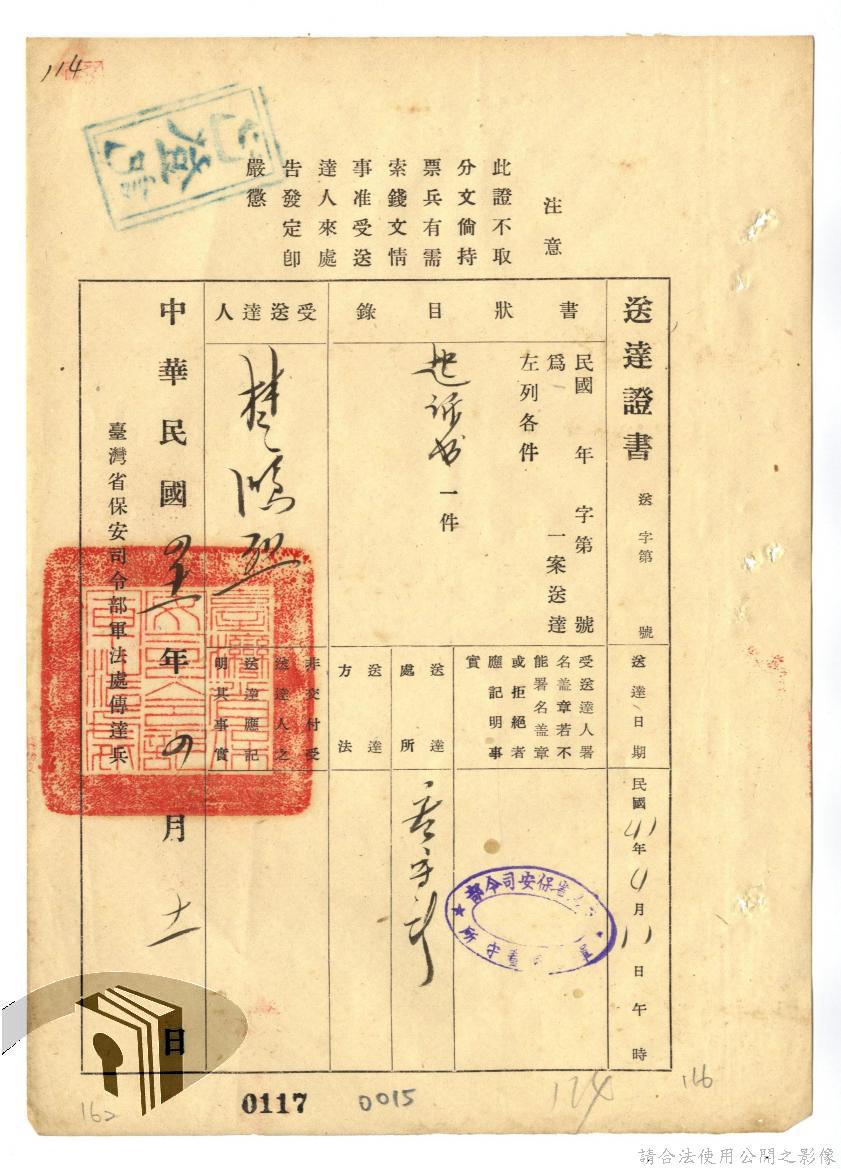 114
注意
此證不取
分文倘持
票兵有需
索錢文情
事准受送
達人來處
告發定卽
嚴懲
送達證書
送 字第 號
送達日期
民國41年4月11日午時
書狀目錄
民國 年 字第 號
為 一案送達
左列各件
起訴書一件
受送達人署
名蓋章若不
能署名蓋章
或拒絕者
應記明事
實
省保安司令部
看守所
送達處所
看守所
送達方法
受送達人
楚鴻烈
非交付受
送達人之
送達應記
明其事實
中華民國四一年四月十一日
臺灣省保安司令部軍法處傳達兵
0117
0015
114
116
162
請合法使用公開之影像